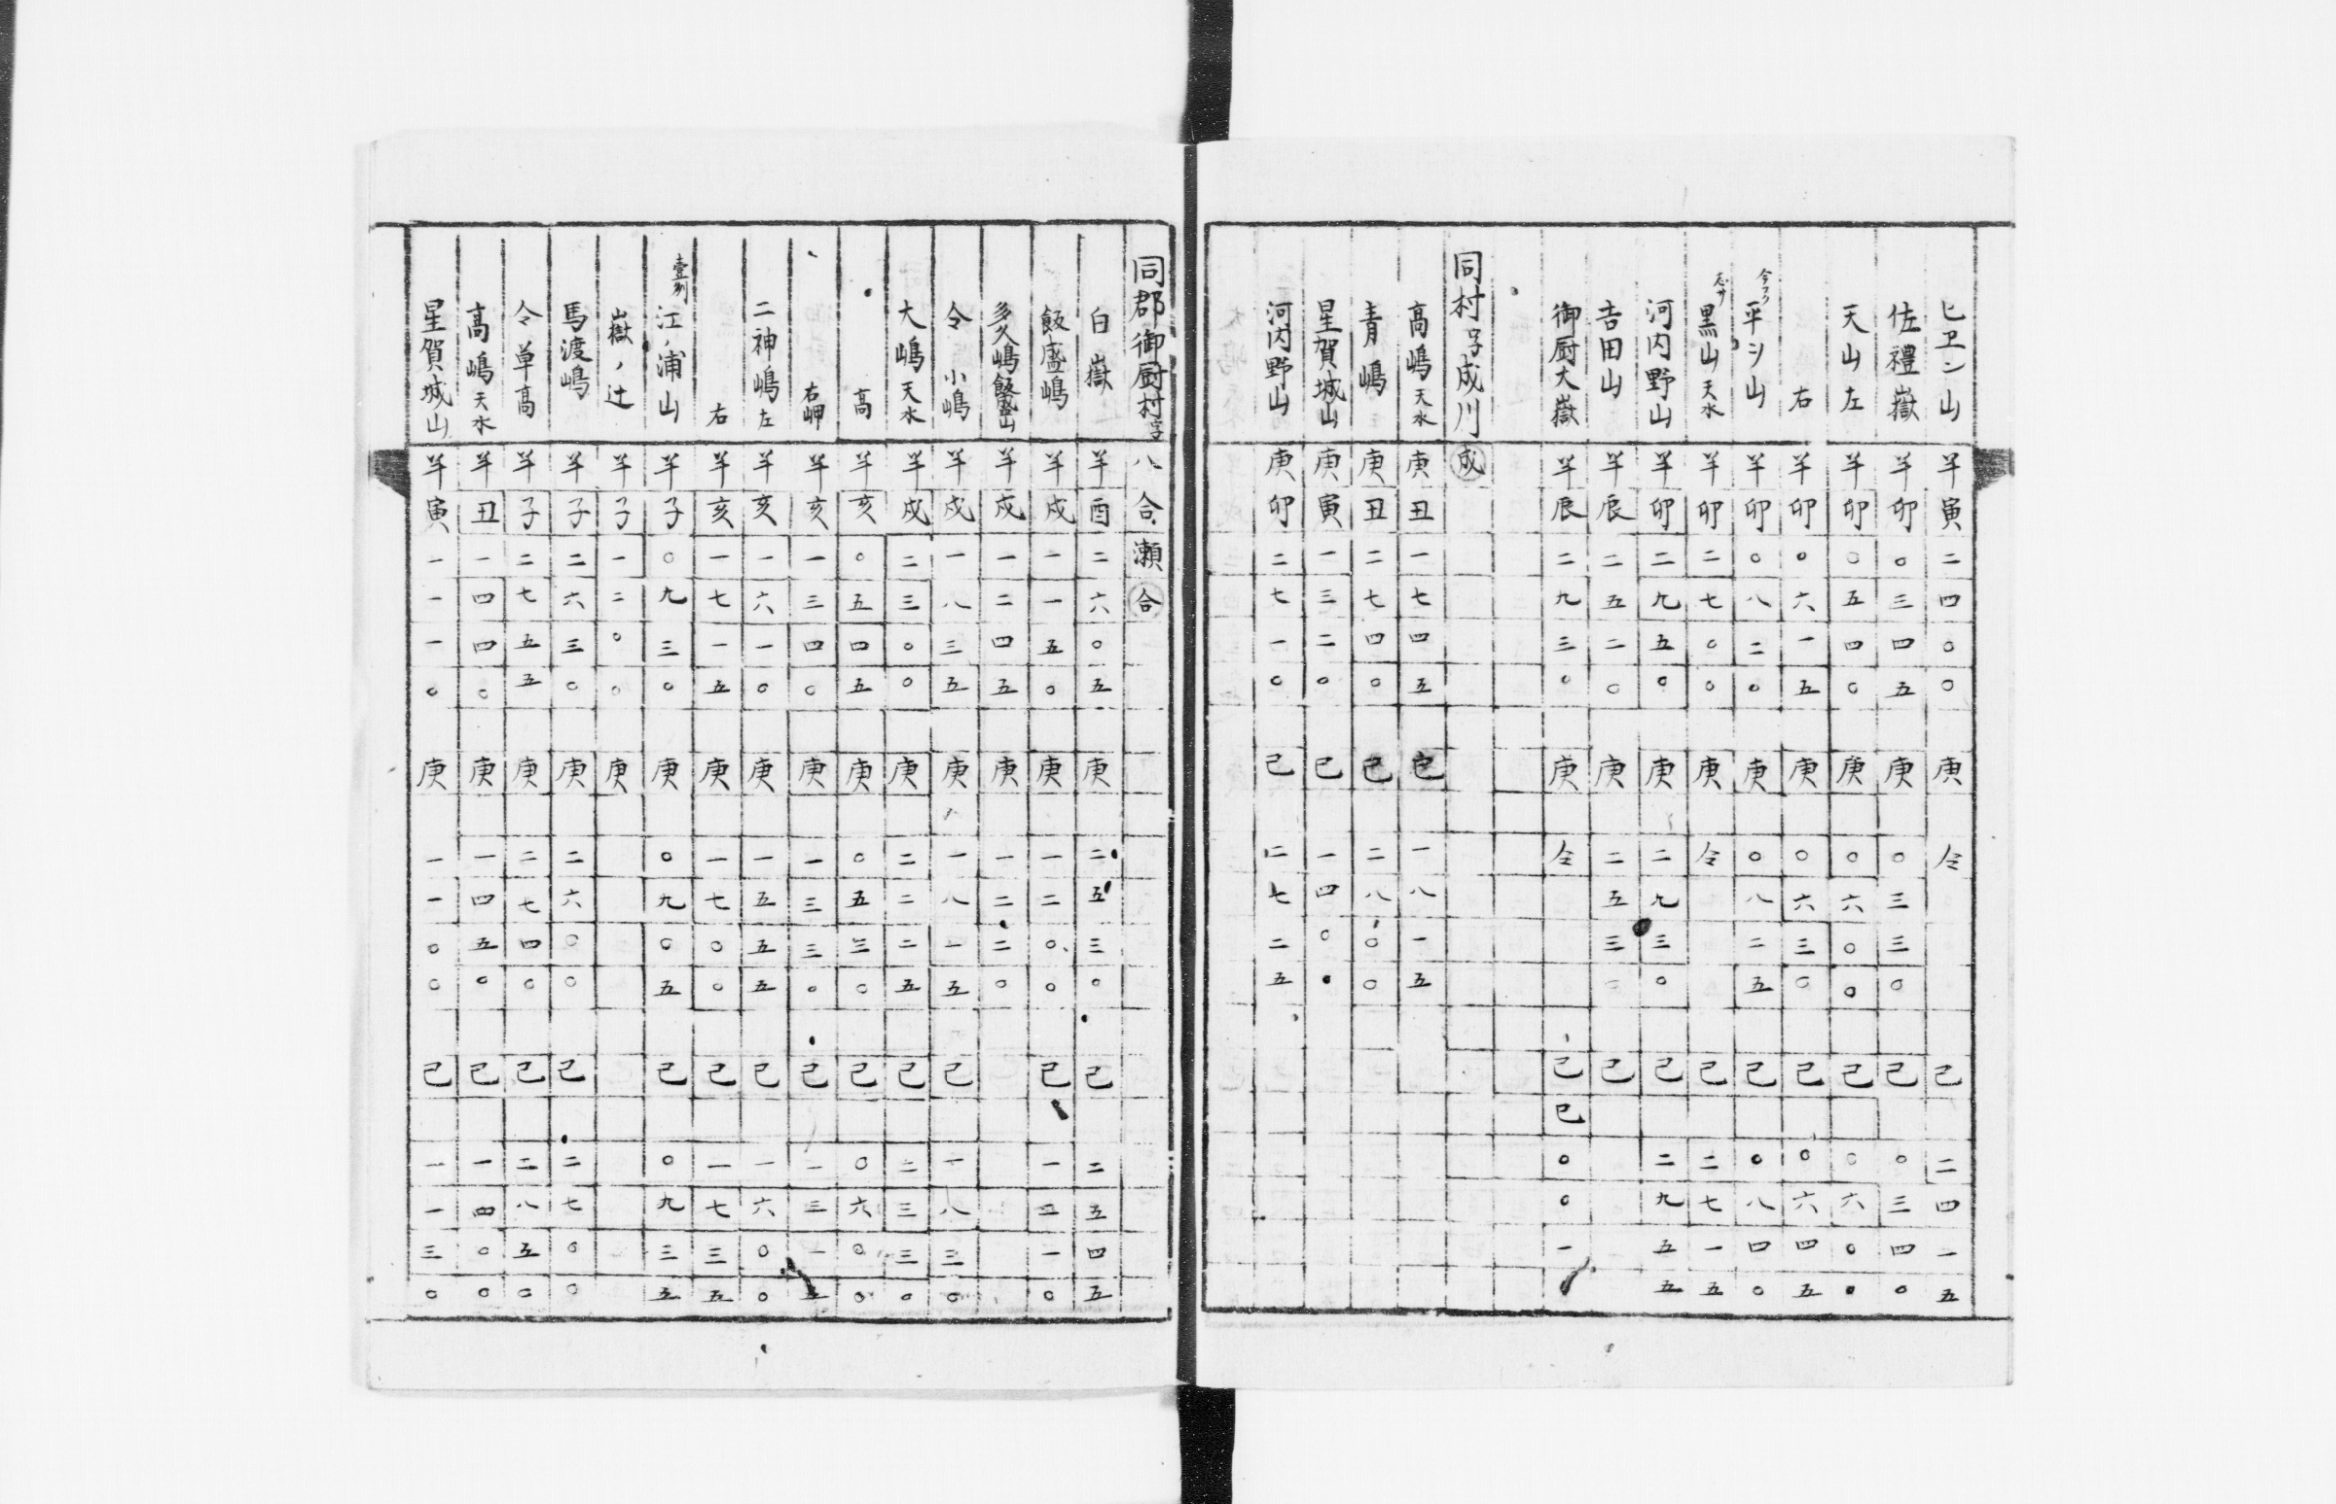 ヒヱン山 羊 寅 二 四 〇 〇 庚 仝 己 二 四 一 五
佐禮嶽 羊 卯 〇 三 四 五 庚 〇 三 三 〇 己 〇 三 四 〇
天山左 羊 卯 〇 五 四 〇 庚 〇 六 〇 〇 己 〇 六 〇 〇
右 羊 卯 〇 六 一 五 庚 〇 六 三 〇 己 〇 六 四 五
平シ山 羊 卯 〇 八 二 〇 庚 〇 八 二 五 己 〇 八 四 〇
黒山天水 羊 卯 二 七 〇 〇 庚 仝 己 二 七 一 五
河内野山 羊 卯 二 九 五 〇 庚 二 九 三 〇 己 二 九 五 五
吉田山 羊 辰 二 五 二 〇 庚 二 五 三 〇 己
御厨大嶽 羊 辰 二 九 三 〇 庚 仝 己 巳 〇 〇 一
同村字成川 成
高嶋天水 庚 丑 一 七 四 五 己 一 八 一 五
青嶋 庚 丑 二 七 四 〇 己 二 八 〇 〇
星賀城山 庚 寅 一 三 二 〇 己 一 四 〇 〇
河内野山 庚 卯 二 七 一 〇 己 二 七 二 五
同郡御厨村字八合瀬 合
白嶽 羊 酉 二 六 〇 五 庚 二 五 三 〇 己 二 五 四 五
飯盛嶋 羊 戌 一 一 五 〇 庚 一 二 〇 〇 己 一 二 一 〇
多久嶋飯盛山 羊 戌 一 二 四 五 庚 一 二 二 〇
仝小嶋 羊 戌 一 八 三 五 庚 一 八 一 五 己 一 八 三 〇
大嶋天水 羊 戌 二 三 〇 〇 庚 二 二 二 五 己 二 三 三 〇
高 羊 亥 〇 五 四 五 庚 〇 五 三 〇 己 〇 六 〇 〇
右岬 羊 亥 一 三 四 〇 庚 一 三 三 〇 己 一 三 一 五
二神嶋左 羊 亥 一 六 一 〇 庚 一 五 五 五 己 一 六 〇 〇
右 羊 亥 一 七 一 五 庚 一 七 〇 〇 己 一 七 三 五
江ノ浦山 羊 子 〇 九 三 〇 庚 〇 九 〇 五 己 〇 九 三 五
嶽ノ辻 羊 子 一 二 〇 〇 庚
馬渡嶋 羊 子 二 六 三 〇 庚 二 六 〇 〇 己 二 七 〇 〇
仝草高 羊 子 二 七 五 五 庚 二 七 四 〇 己 二 八 五 〇
高嶋天水 羊 丑 一 四 四 〇 庚 一 四 五 〇 己 一 四 〇 〇
星賀城山 羊 寅 一 一 一 〇 庚 一 一 〇 〇 己 一 一 三 〇